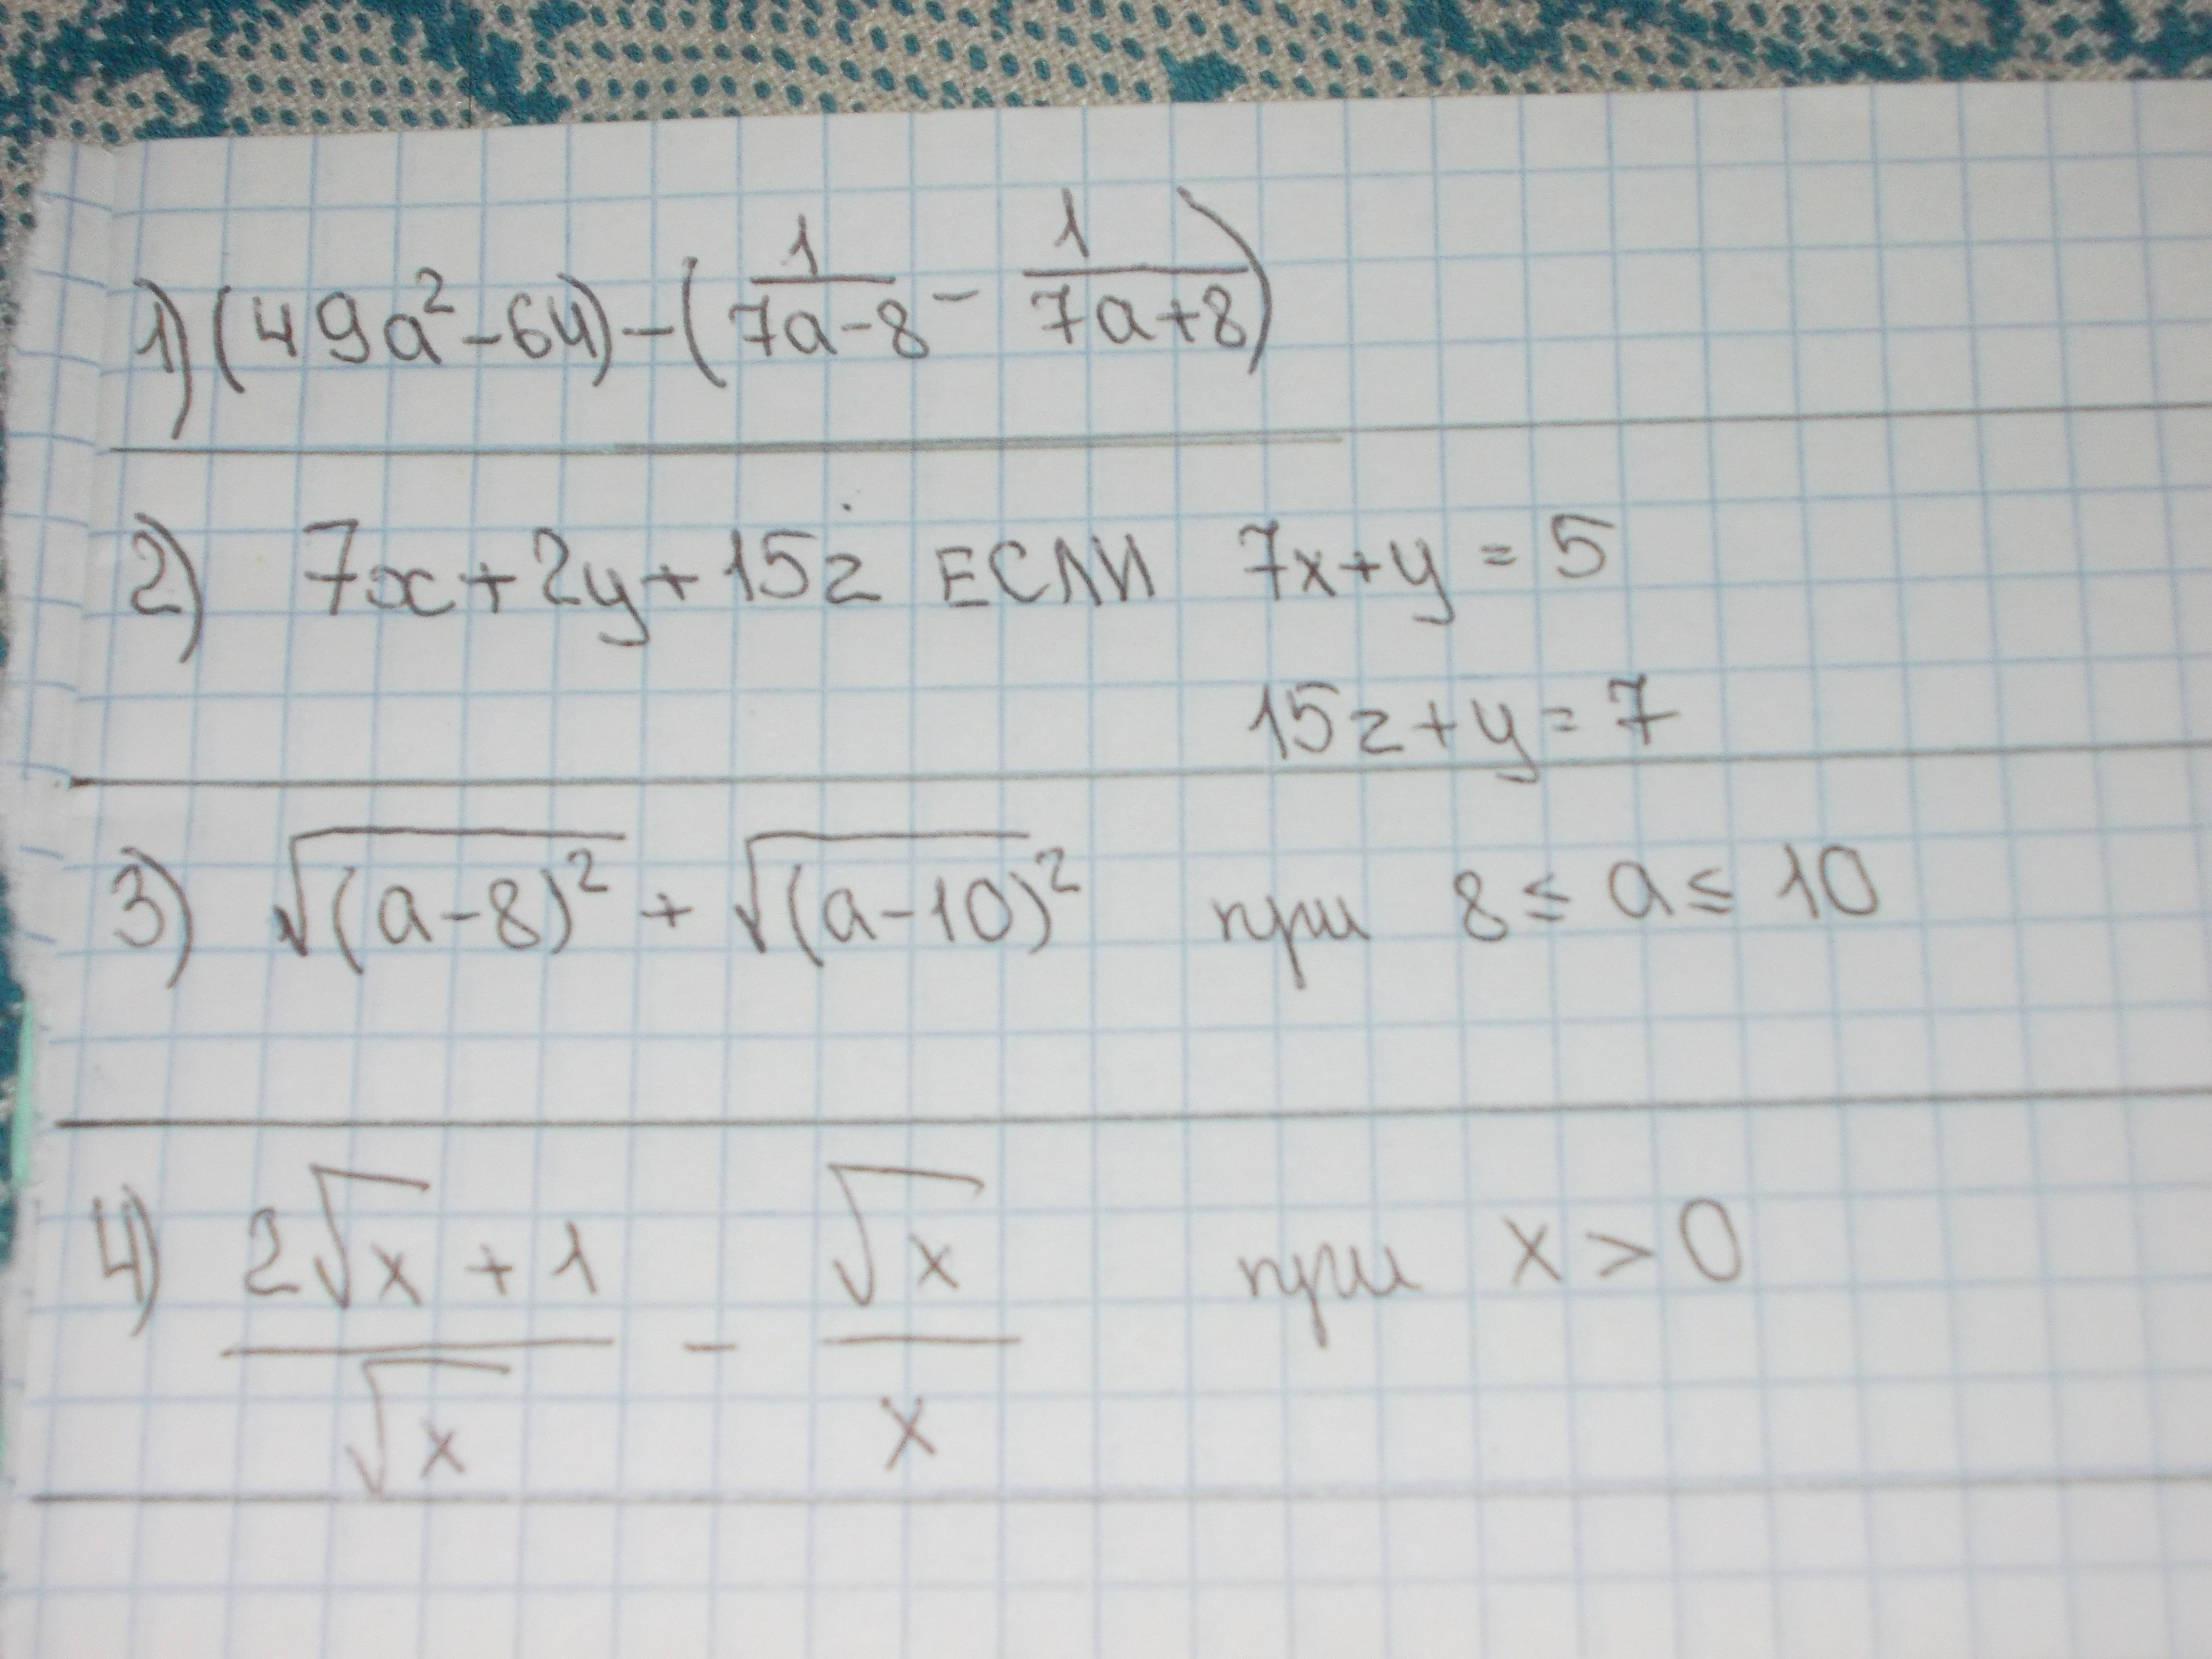 1) (49a² - 64) - (1/(7a - 8) - 1/(7a + 8))
2) 7x + 2y + 15z ЕСЛИ 7x + y = 5
15z + y = 7
3) √(a - 8)² + √(a - 10)² при 8 ≤ a ≤ 10
4) (2√x + 1)/√x - √x/x при x > 0